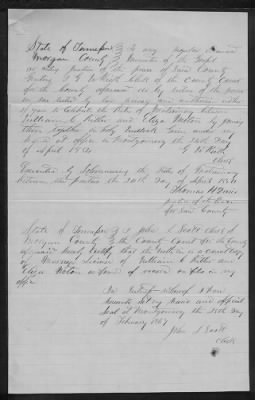 State of Tennessee } To any regular
Morgan County } Minister of the Gospel
or acting Justice of the peace of said County
Greeting I G W Keith Clerk of the County Court
for the County aforesaid do by virtue of the power
in me vested by law license and authorise either
of you to celebrate the Rite of Matrimony between
William C and Eliza by joining
them together in holy wedlock Given under my
hand at office in Montgomery the 20th day
of April 18
G W Keith
Clerk
Executed by Solemnizing the Rite of Matrimony
between the parties the 20th day of April 18
Thomas H Davis
Justice of the Peace
for said County
State of Tennessee } I John L Scott Clerk of
Morgan County } the County Court for the County
aforesaid hereby Certify that the within is a correct Copy
of Marriage License of William C and
Eliza as found of record on file in my
office
In testimony whereof I have
hereunto set my hand and official
seal at Montgomery the 18th day
of February 1867
John L Scott
Clerk